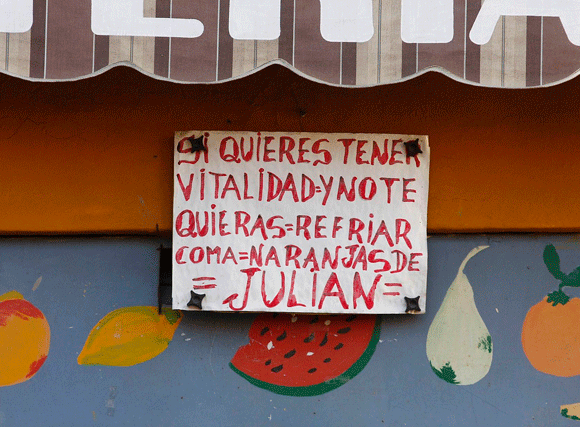 SI QUIERES TENER
VITALIDAD=Y NO TE
QUIERAS=REFRIAR
COMA=NARANJAS DE
=JULIÁN=